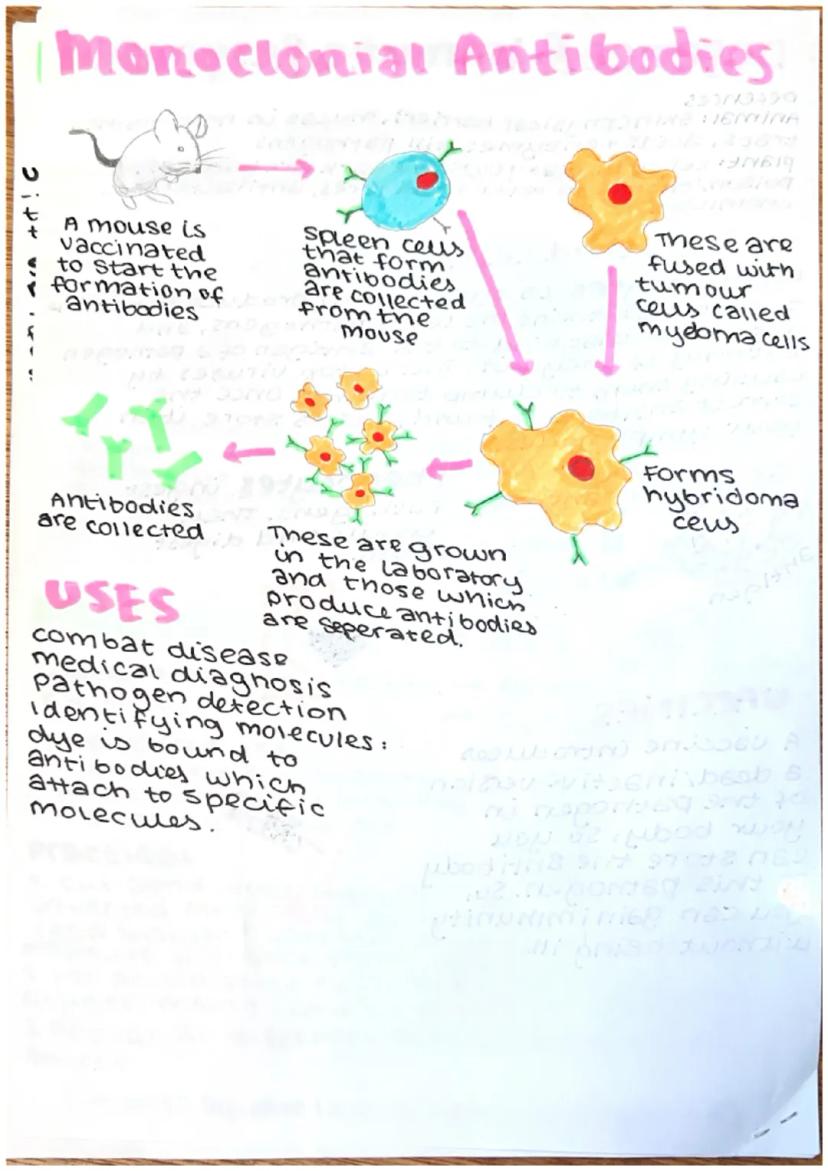 Monoclonial Antibodies
A mouse is
vaccinated
to start the
formation of
antibodies
Spleen cells
that form
antibodies
are collected
from the
mouse
These are
fused with
tumour
cells called
myeloma cells
Forms
hybridoma
cells
These are grown
in the laboratory
and those which
produce antibodies
are seperated.
Antibodies
are collected
USES
combat disease
medical diagnosis
pathogen detection
Identifying molecules:
dye is bound to
antibodies which
attach to specific
molecules.